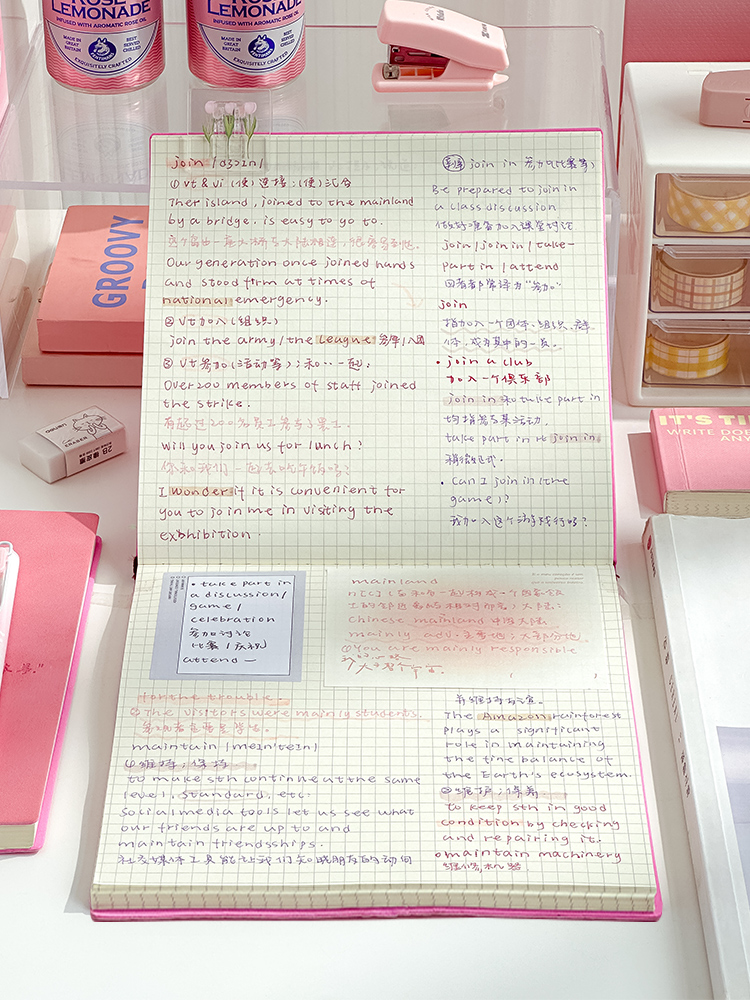 ROSE
LEMONADE
INFUSED WITH AROMATIC ROSE OIL
MADE IN
GREAT
BRITAIN
BEST
SERVED
CHILLED
EXQUISITELY CRAFTED
LEMONADE
INFUSED WITH AROMATIC ROSE OIL
MADE IN
GREAT
BRITAIN
BEST
SERVED
CHILLED
EXQUISITELY CRAFTED
GROOVY
deli
ERASER
2B
IT'S TI
WRITE DOE
join
① vt & vi (使)连接;(使)汇合
Ther island, joined to the mainland
by a bridge. is easy to go to.
这个岛由一座大桥与大陆相连,很容易到达.
Our generation once joined hands
and stood firm at times of
national emergency.
② vt 加入(组织)
join the army/the League 参军/入团
③ vt 参加(活动等);和…一起:
Over 200 members of staff joined
the strike.
有超过200名员工参与了罢工.
will you join us for lunch?
你和我们一起去吃午饭吗?
I wonder if it is convenient for
you to join me in visiting the
exbhibition.
join in 参加(比赛等)
Be prepared to join in
a class discussion
做好准备加入课堂讨论
join/join in/take-
part in/attend
四者都常译为"参加"
join
指加入一个团体、组织、群
体,成为其中的一员。
• join a club
加入一个俱乐部
join in 和 take part in
均指参与某活动.
take part in 比 join in
稍微正式.
• Can I join in (the
game)?
我加入这个游戏行吗?
• take part in
a discussion/
game/
celebration
参加讨论
比赛/庆祝
attend —
mainland
Chinese mainland 中国大陆
mainly adv. 主要地;大部分地
① You are mainly responsible
for the trouble.
② The visitors were mainly students.
maintain /meɪnˈteɪn/
① 维持;保持
to make sth continne at the same
level, standard, etc.
Social media tools let us see what
our friends are up to and
maintain friendsships.
社交媒体工具能让我们知晓朋友的动向
并维持友谊.
The Amazon rainforest
plays a significant
role in maintaining
the fine balance of
the Earth's ecosystem.
② 维护;保养
to keep sth in good
condition by checking
and repairing it.
• maintain machinery
维修机器